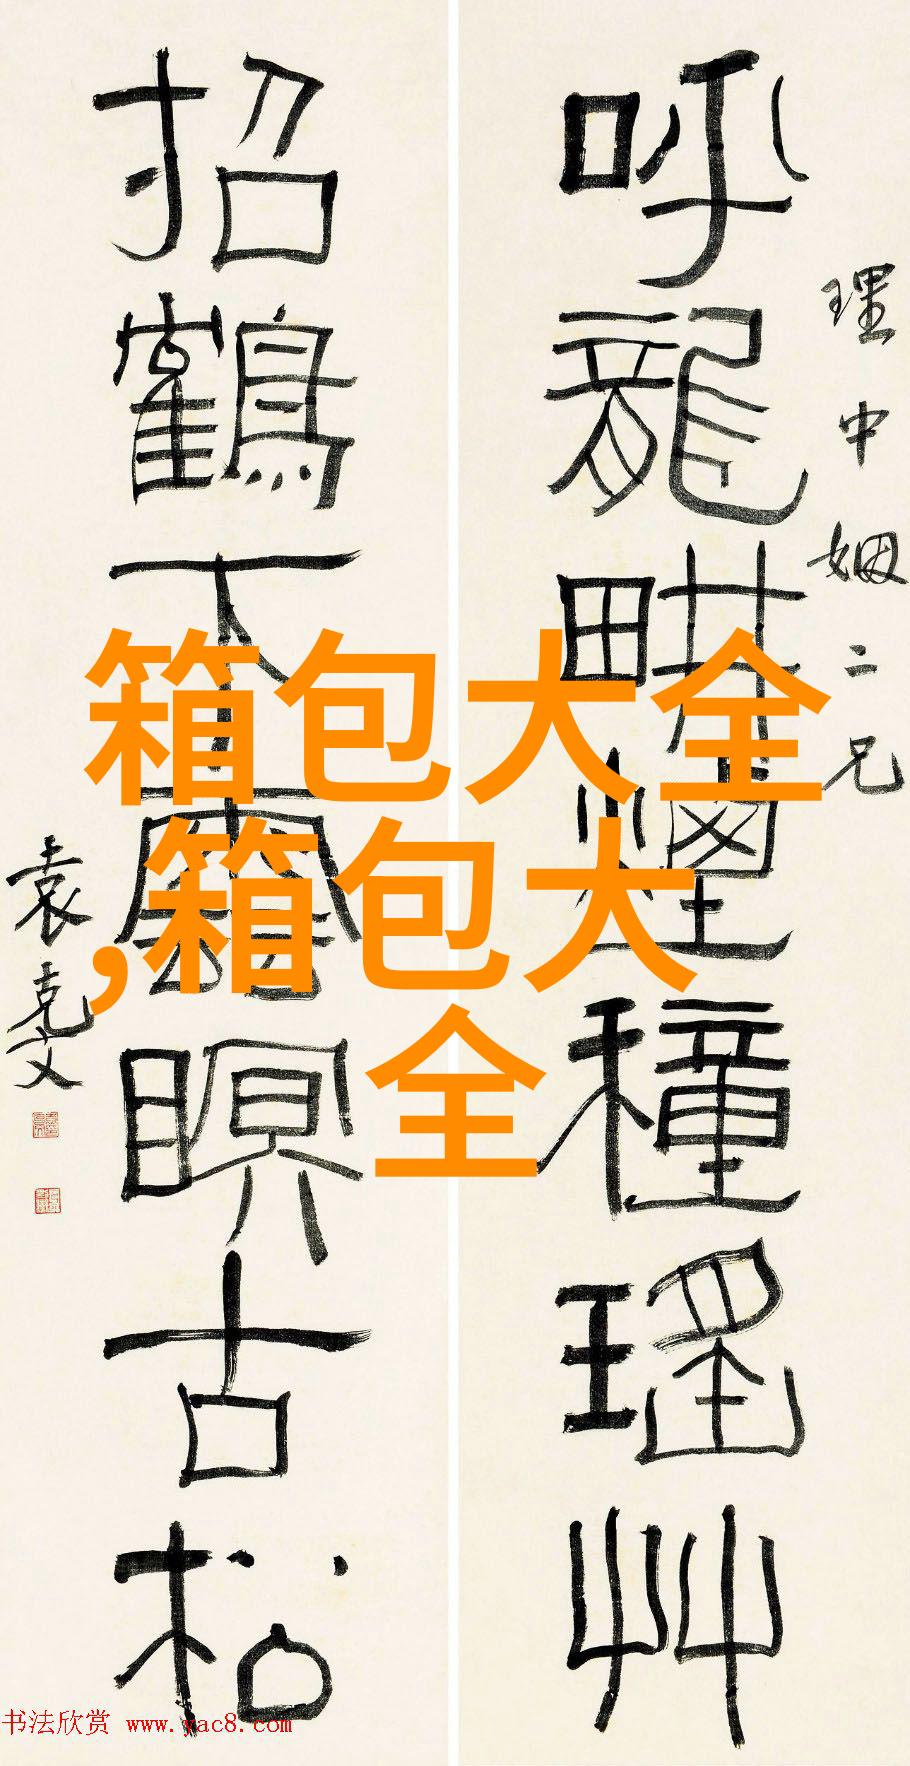 理中姻二兄
呼龍畊煙種瑤艸
招鶴下雲瞑古松
袁克文
箱包大全
,箱包大
全
书法欣赏 www.yac8.com